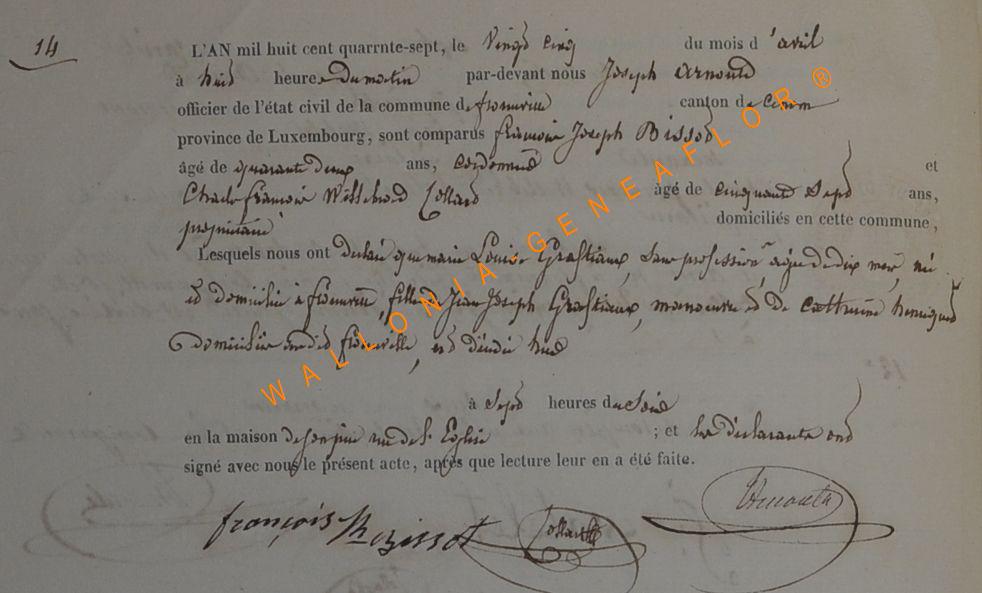 14
L'AN mil huit cent quarrnte-sept, le Vingt cinq du mois d'avril
à huit heures du matin par-devant nous Joseph Arnould
officier de l'état civil de la commune de canton de
province de Luxembourg, sont comparus François Joseph Bissot
âgé de quarante deux ans, cordonnier et
Charle François Willebrord Collard âgé de cinquante Sept ans,
propriétaire domiciliés en cette commune,
Lesquels nous ont déclaré que marie Louise Grastiaux, sans profession agée de dix mois, né
et domicilié à fille de Jean Joseph Grastiaux, manoeuvre et De Catherine
domiciliés audit est décédée hier
à Sept heures du Soir
en la maison de son père rue de l'Eglise ; et les déclarants ont
signé avec nous le présent acte, après que lecture leur en a été faite.
françois Bissot Collard Arnould
WALLONIA-GENEAFLOR®